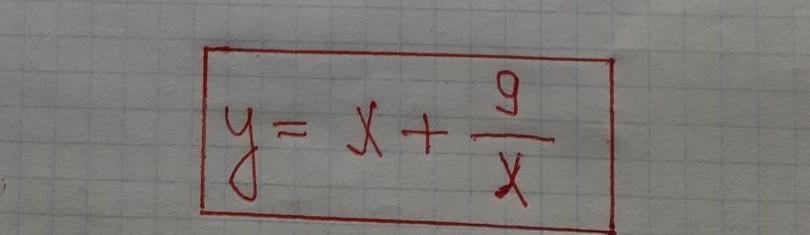 y = x + 9/x